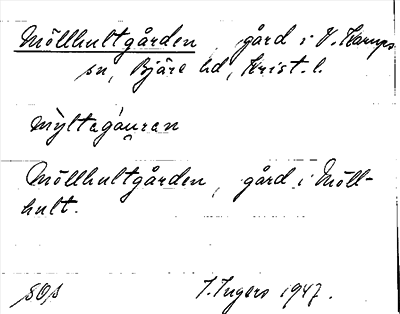 Möllhultgården, gård i V. Karups
sn, Bjäre hd, Krist. l.
mỳltagáuran
Möllhultgården, gård i Möll-
hult.
SOS I. Ingers 1947.